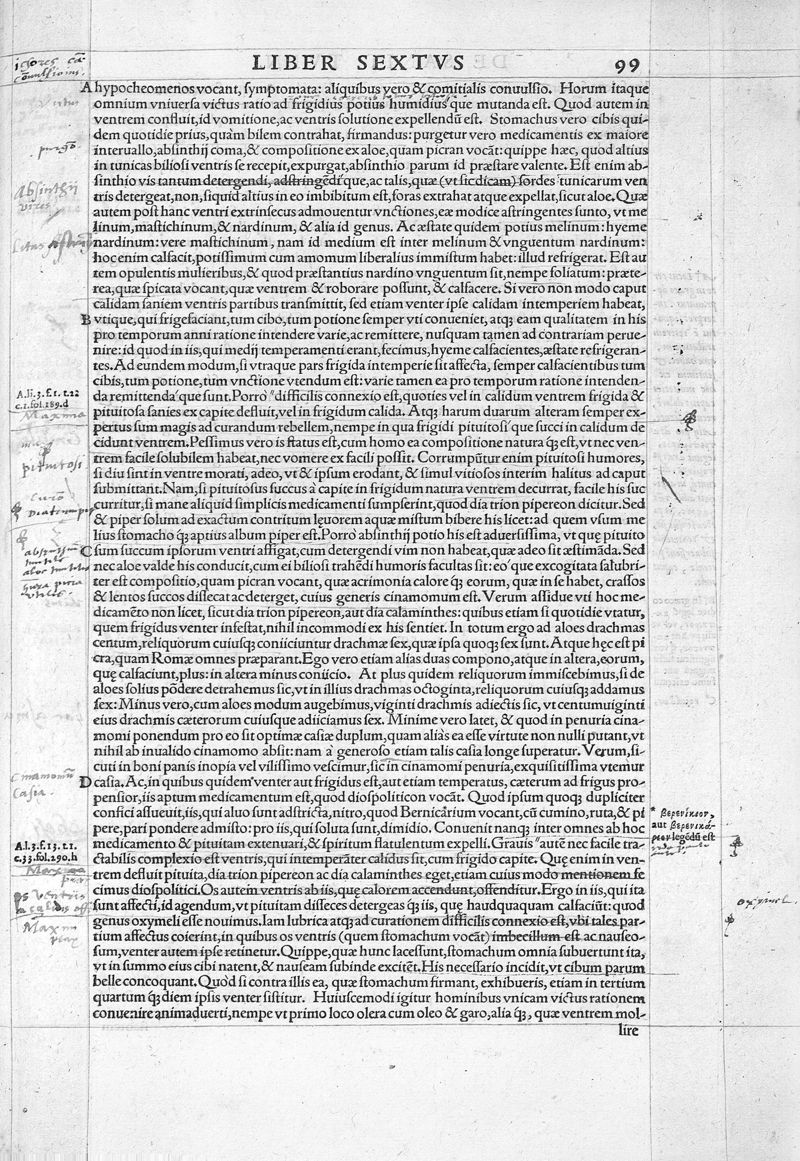 LIBER SEXTVS 99
A hypocheomenos vocant, symptomata: aliquibus vero & comitialis conuulsio. Horum itaque
omnium vniuersa victus ratio ad frigidius potius humidius'que mutanda est. Quod autem in
ventrem confluit, id vomitione, ac ventris solutione expellendũ est. Stomachus vero cibis qui-
dem quotidie prius, quàm bilem contrahat, firmandus: purgetur vero medicamentis ex maiore
interuallo, absinthij coma, & compositione ex aloe, quam picran vocãt: quippe hæc, quod altius
in tunicas biliosi ventris se recepit, expurgat, absinthio parum id præstare valente. Est enim ab-
sinthio vis tantum detergendi, adstringẽdi'que, ac talis, quæ (vt sic dicam) sordes tunicarum ven
tris detergeat, non, siquid altius in eo imbibitum est, foras extrahat atque expellat, sicut aloe. Quæ
autem post hanc ventri extrinsecus admouentur vnctiones, eæ modice astringentes sunto, vt me
linum, mastichinum, & nardinum, & alia id genus. Ac æstate quidem potius melinum: hyeme
nardinum: vere mastichinum, nam id medium est inter melinum & vnguentum nardinum:
hoc enim calfacit, potissimum cum amomum liberalius immistum habet: illud refrigerat. Est au
tem opulentis mulieribus, & quod præstantius nardino vnguentum sit, nempe foliatum: præte-
rea, quæ spicata vocant, quæ ventrem & roborare possunt, & calfacere. Si vero non modo caput
calidam saniem ventris partibus transmittit, sed etiam venter ipse calidam intemperiem habeat,
B vtique, qui frigefaciant, tum cibo, tum potione semper vti conueniet, atq; eam qualitatem in his
pro temporum anni ratione intendere varie, ac remittere, nusquam tamen ad contrariam perue-
nire: id quod in iis, qui medij temperamenti erant, fecimus, hyeme calfacientes, æstate refrigeran-
tes. Ad eundem modum, si vtraque pars frigida intemperie sit affecta, semper calfacientibus tum
cibis, tum potione, tum vnctione vtendum est: varie tamen ea pro temporum ratione intenden-
A.li.3.f.1.t.12
c.1.fol.189.d
da remittenda'que sunt. Porro "difficilis connexio est, quoties vel in calidum ventrem frigida &
pituitosa sanies ex capite defluit, vel in frigidum calida. Atq; harum duarum alteram semper ex-
pertus sum magis ad curandum rebellem, nempe in qua frigidi pituitosi'que succi in calidum de
cidunt ventrem. Pessimus vero is status est, cum homo ea compositione natura q; est, vt nec ven-
trem facile solubilem habeat, nec vomere ex facili possit. Corrumpũtur enim pituitosi humores,
si diu sint in ventre morati, adeo, vt & ipsum erodant, & simul vitiosos interim halitus ad caput
submittant. Nam, si pituitosus succus à capite in frigidum natura ventrem decurrat, facile his suc
curritur, si mane aliquid simplicis medicamenti sumpserint, quod dia trion pipereon dicitur. Sed
& piper solum ad exactum contritum leuorem aquæ mistum bibere his licet: ad quem vsum me
lius stomacho q; aptius album piper est. Porro absinthij potio his est aduersissima, vt quę pituito
C sum succum ipsorum ventri affigat, cum detergendi vim non habeat, quæ adeo sit æstimãda. Sed
nec aloe valde his conducit, cum ei biliosi trahẽdi humoris facultas sit: eo'que excogitata salubri-
ter est compositio, quam picran vocant, quæ acrimonia calore q; eorum, quæ in se habet, crassos
& lentos succos dissecat ac deterget, cuius generis cinamomum est. Verum assidue vti hoc me-
dicamẽto non licet, sicut dia trion pipereon, aut dia calaminthes: quibus etiam si quotidie vtatur,
quem frigidus venter infestat, nihil incommodi ex his sentiet. In totum ergo ad aloes drachmas
centum, reliquorum cuiusq; coniiciuntur drachmæ sex, quæ ipsa quoq; sex sunt. Atque hęc est pi
cra, quam Romæ omnes præparant. Ego vero etiam alias duas compono, atque in altera, eorum,
quę calfaciunt, plus: in altera minus coniicio. At plus quidem reliquorum immiscebimus, si de
aloes solius põdere detrahemus sic, vt in illius drachmas octoginta, reliquorum cuiusq; addamus
sex: Minus vero, cum aloes modum augebimus, viginti drachmis adiectis sic, vt centumuiginti
eius drachmis cæterorum cuiusque adiiciamus sex. Minime vero latet, & quod in penuria cina-
momi ponendum pro eo sit optimæ casiæ duplum, quam aliàs ea esse virtute non nulli putant, vt
nihil ab inualido cinamomo absit: nam à generoso etiam talis casia longe superatur. Verum, si-
cuti in boni panis inopia vel vilissimo vescimur, sic in cinamomi penuria, exquisitissima vtemur
D casia. Ac, in quibus quidem venter aut frigidus est, aut etiam temperatus, cæterum ad frigus pro-
pensior, iis aptum medicamentum est, quod diospoliticon vocãt. Quod ipsum quoq; dupliciter
confici assueuit, iis, qui aluo sunt adstricta, nitro, quod Bernicãrium vocant, cũ cumino, ruta, & pi
pere, pari pondere admisto: pro iis, qui soluta sunt, dimidio. Conuenit nanq; inter omnes ab hoc
* βερενίκιον,
aut βερενικά-
ριον legẽdũ est
A.l.3.f.13.t.1.
c.33.fol.290.h
medicamento & pituitam extenuari, & spiritum flatulentum expelli. Grauis "autẽ nec facile tra-
ctabilis complexio est ventris, qui intemperãter calidus sit, cum frigido capite. Quę enim in ven-
trem defluit pituita, dia trion pipereon ac dia calaminthes eget, etiam cuius modo mentionem fe
cimus diospolitici. Os autem ventris ab iis, quę calorem accendunt, offenditur. Ergo in iis, qui ita
sunt affecti, id agendum, vt pituitam disseces detergeas q; iis, quę haudquaquam calfaciũt: quod
genus oxymeli esse nouimus. Iam lubrica atq; ad curationem difficilis connexio est, vbi tales par-
tium affectus coierint, in quibus os ventris (quem stomachum vocãt) imbecillum est ac nauseo-
sum, venter autem ipse retinetur. Quippe, quæ hunc lacessunt, stomachum omnia subuertunt ita,
vt in summo eius cibi natent, & nauseam subinde excitẽt. His necessario incidit, vt cibum parum
belle concoquant. Quòd si contra illis ea, quæ stomachum firmant, exhibueris, etiam in tertium
quartum q; diem ipsis venter sistitur. Huiuscemodi igitur hominibus vnicam victus rationem
conuenire animaduerti, nempe vt primo loco olera cum oleo & garo, alia q; , quæ ventrem mol-
lire
purgo
Absinthij
vires
Maxima
pituitosi
cinamomũ
Casia.
oxymel.